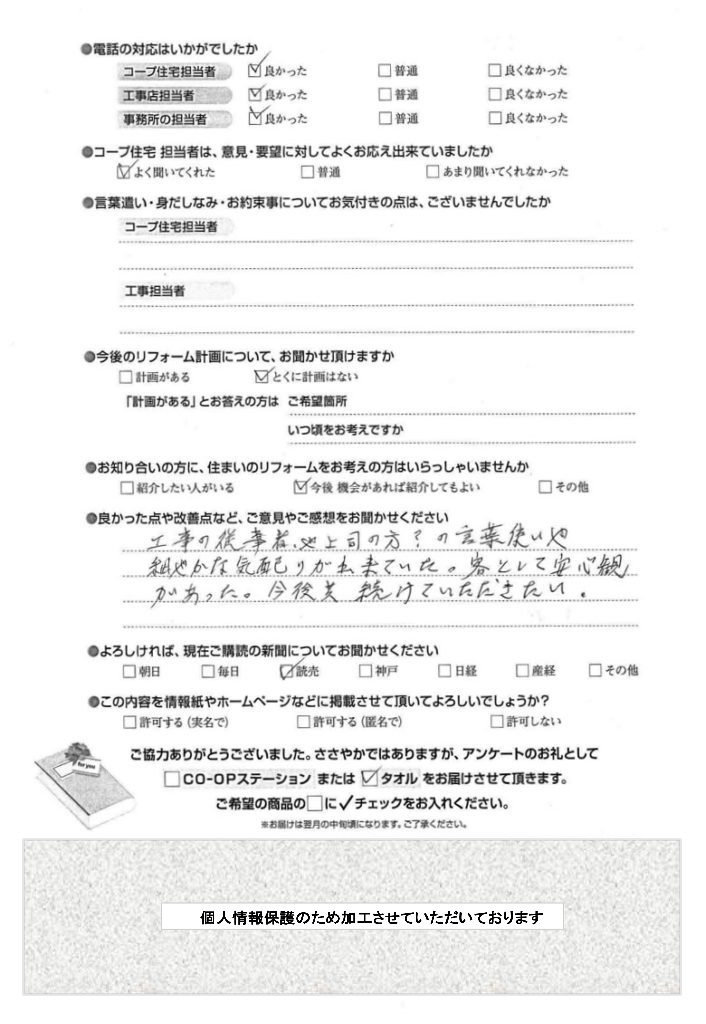 ●電話の対応はいかがでしたか
コープ住宅担当者 ☑良かった □普通 □良くなかった
工事店担当者 ☑良かった □普通 □良くなかった
事務所の担当者 ☑良かった □普通 □良くなかった
●コープ住宅 担当者は、意見・要望に対してよくお応え出来ていましたか
☑よく聞いてくれた □普通 □あまり聞いてくれなかった
●言葉遣い・身だしなみ・お約束事についてお気付きの点は、ございませんでしたか
コープ住宅担当者
工事担当者
●今後のリフォーム計画について、お聞かせ頂けますか
□計画がある ☑とくに計画はない
「計画がある」とお答えの方は ご希望箇所
いつ頃をお考えですか
●お知り合いの方に、住まいのリフォームをお考えの方はいらっしゃいませんか
□紹介したい人がいる ☑今後 機会があれば紹介してもよい □その他
●良かった点や改善点など、ご意見やご感想をお聞かせください
工事の従事者、上司の方?の言葉使いや
細やかな気配りが出来ていた。客として安心観
があった。今後共 続けていただきたい。
●よろしければ、現在ご購読の新聞についてお聞かせください
□朝日 □毎日 ☑読売 □神戸 □日経 □産経 □その他
●この内容を情報紙やホームページなどに掲載させて頂いてよろしいでしょうか?
□許可する(実名で) □許可する(匿名で) □許可しない
ご協力ありがとうございました。ささやかではありますが、アンケートのお礼として
for you
□CO-OPステーション または ☑タオル をお届けさせて頂きます。
ご希望の商品の□に✓チェックをお入れください。
※お届けは翌月の中旬頃になります。ご了承ください。
個人情報保護のため加工させていただいております